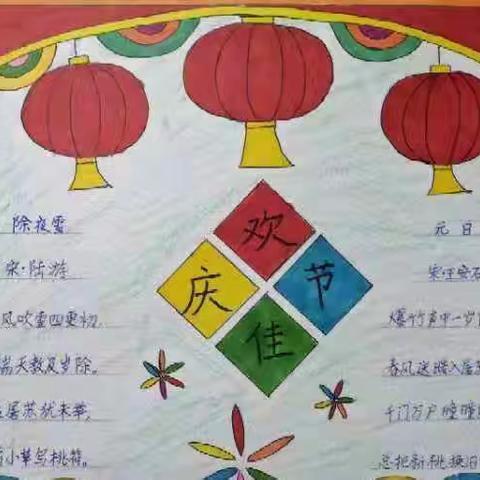 欢
庆 节
佳
除夜雪
宋·陆游
风吹雪四更初,
瑞天教及岁除。
屠苏犹未举,
小草写桃符。
元日
宋·王安石
爆竹声中一岁
春风送暖入屠
千门万户曈曈
总把新桃换旧